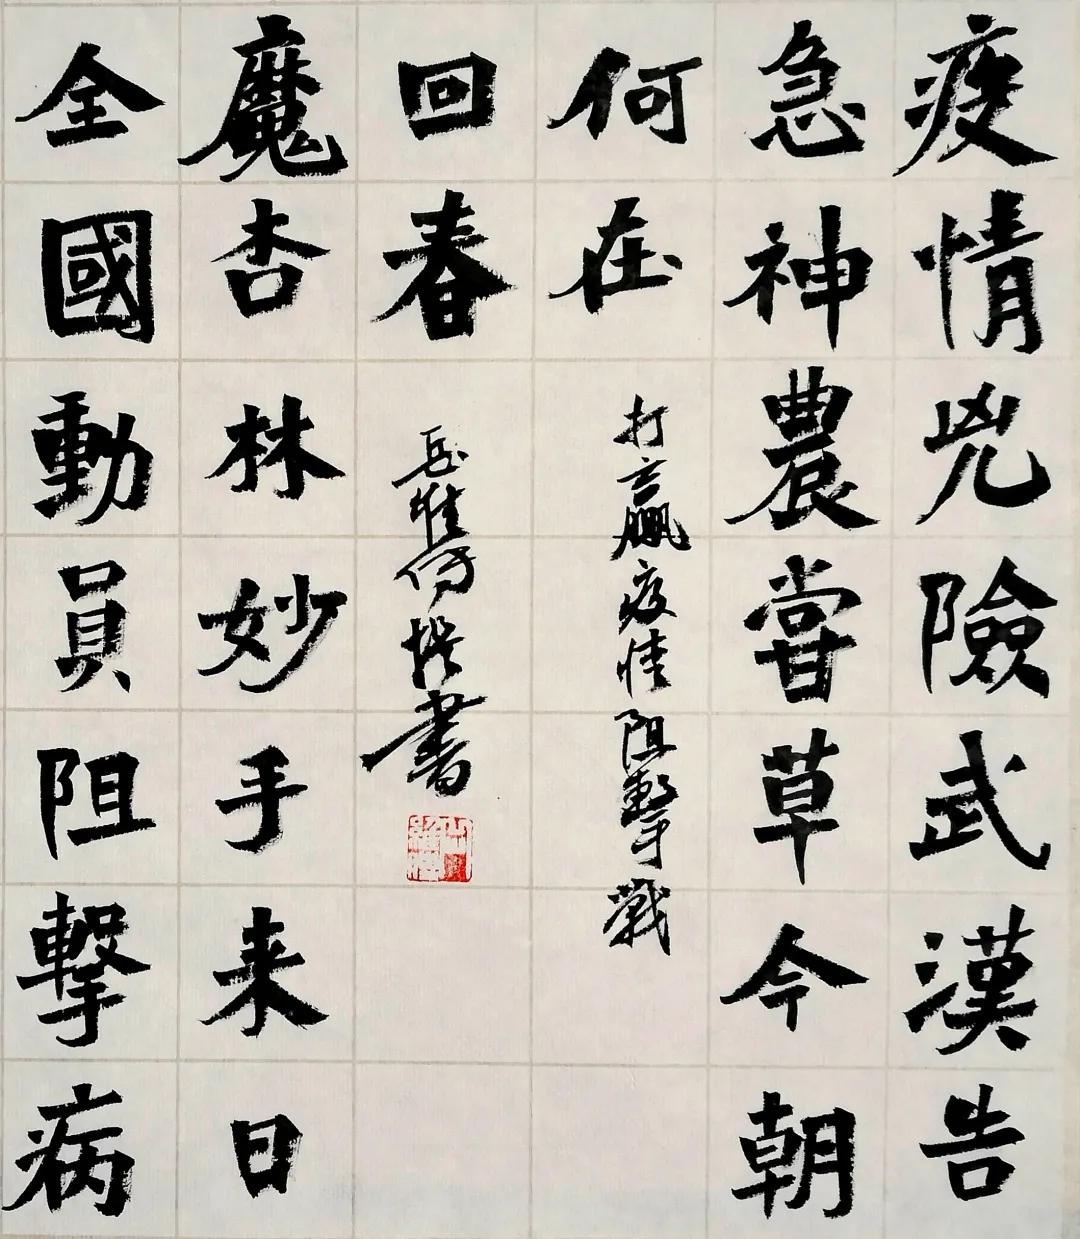 疫情兇險武漢告
急神農嘗草今朝
何在
打贏疫情阻擊戰
全國動員阻擊病
魔杏林妙手来日
回春
岳維撰書